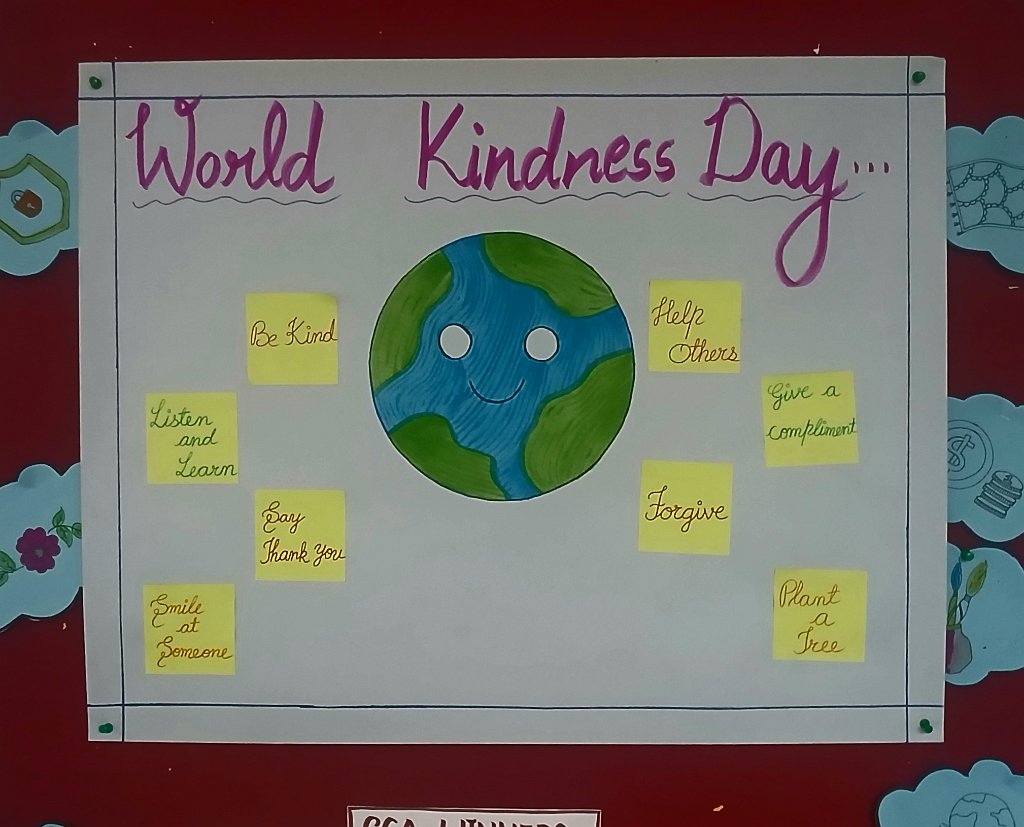 World Kindness Day...
Be Kind
Listen
and
Learn
Say
Thank You
Smile
at
Someone
Help
Others
Give a
compliment
Forgive
Plant
a
Tree